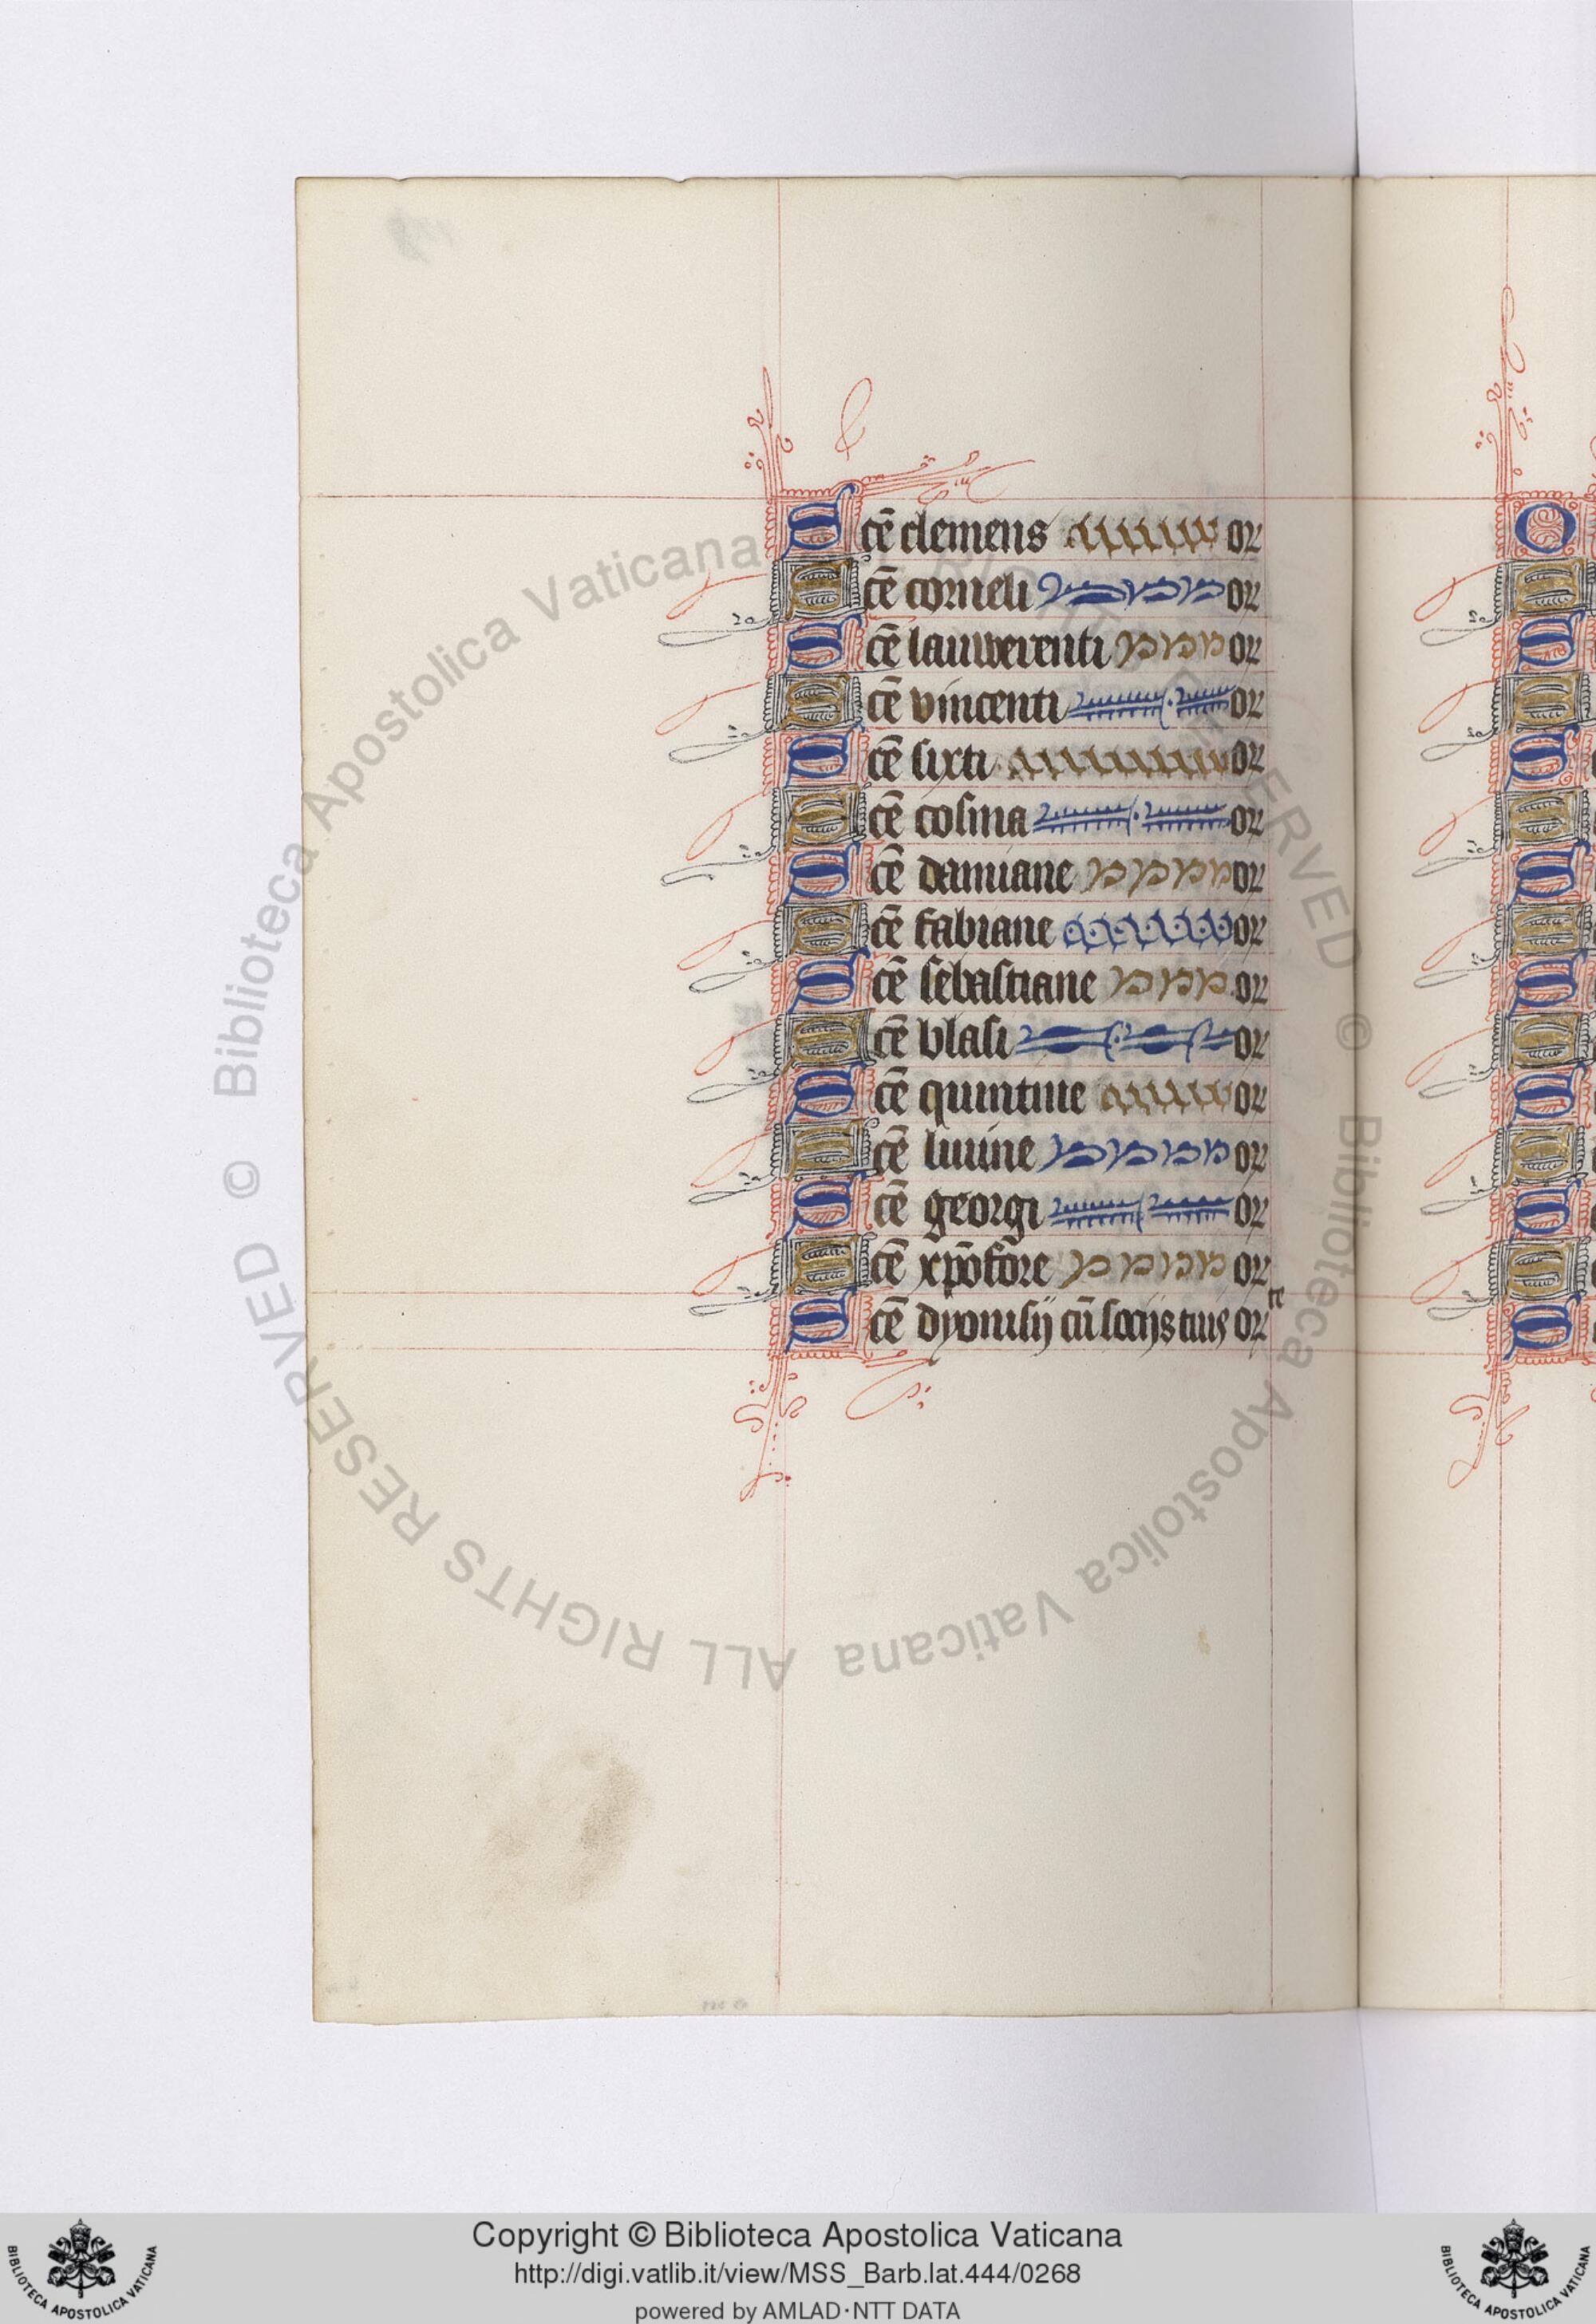 Scē clemens or
Scē corneli or
Scē lauwerenti or
Scē vincenti or
Scē sixti or
Scē cosma or
Scē damiane or
Scē fabiane or
Scē sebastiane or
Scē blasi or
Scē quintine or
Scē liuine or
Scē georgi or
Scē xp̄ofore or
Scē dyonisij cū socijs tuis or te
© Biblioteca Apostolica Vaticana
ALL RIGHTS RESERVED © Biblioteca Apostolica Vaticana
Copyright © Biblioteca Apostolica Vaticana
http://digi.vatlib.it/view/MSS_Barb.lat.444/0268
powered by AMLAD·NTT DATA
BIBLIOTECA APOSTOLICA VATICANA
BIBLIOTECA APOSTOLICA VATICANA